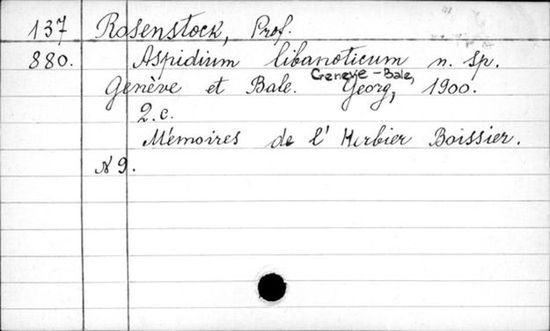 137 Rosenstock, Prof.
880. Aspidium libanoticum n. sp.
Geneve-Bale,
Genève et Bale. Georg, 1900.
2.c.
Mémoires de l' Herbier Boissier.
N 9.